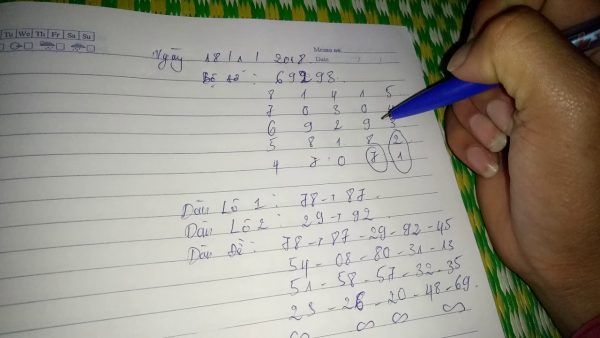 Tu We Th Fr Sa Su
Memo No.
Date
Ngày 18 / 1 / 2018
Bộ số: 69298.
8 1 4 1 5
7 0 3 0 4
6 9 2 9 3
5 8 1 8 2
4 7 0 7 1
Dàn Lô 1: 78 + 87.
Dàn Lô 2: 29 + 92
Dàn Đề: 78 + 87 - 29 - 92 - 45
54 - 08 - 80 - 31 - 13
51 - 58 - 57 - 32 - 35
23 - 26 - 20 - 48 - 69.